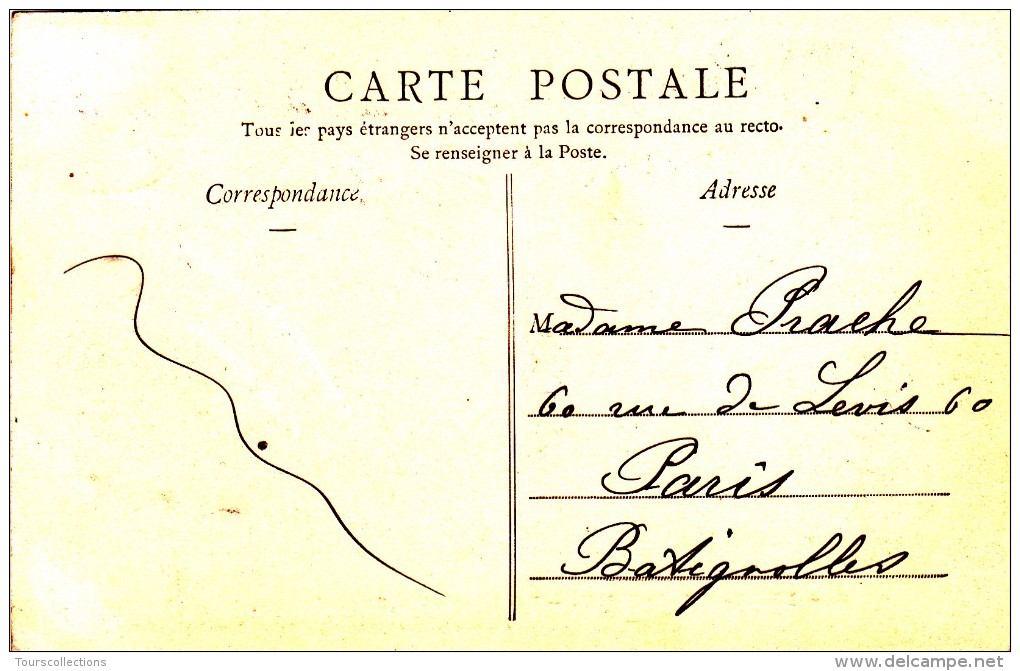 CARTE POSTALE
Tous les pays étrangers n'acceptent pas la correspondance au recto.
Se renseigner à la Poste.
Correspondance
Adresse
Madame Prache
60 rue de Levis 60
Paris
Batignolles
Tourscollections
www.delcampe.net